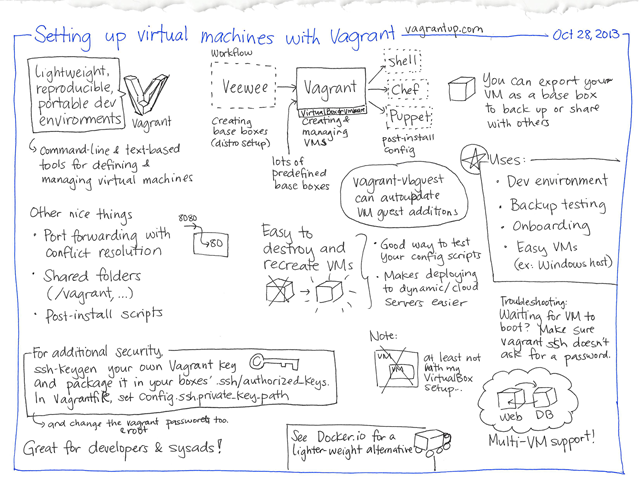 Setting up virtual machines with Vagrant
vagrantup.com
Oct 28, 2013
Lightweight,
reproducible,
portable dev
environments
Vagrant
Command-line & text-based
tools for defining &
managing virtual machines
Workflow
Veewee
Creating
base boxes
(distro setup)
Vagrant
Creating &
managing
VMs
lots of
predefined
base boxes
Shell
Chef
Puppet
post-install
config
You can export your
VM as a base box
to back up or share
with others
vagrant-vbguest
can autoupdate
VM guest additions
Uses:
• Dev environment
• Backup testing
• Onboarding
• Easy VMs
(ex: Windows host)
Other nice things
• Port forwarding with
conflict resolution
8080
80
• Shared folders
(/vagrant, ...)
• Post-install scripts
Easy to
destroy and
recreate VMs
• Good way to test
your config scripts
• Makes deploying
to dynamic/cloud
servers easier
Troubleshooting:
Waiting for VM to
boot? Make sure
vagrant ssh doesn't
ask for a password.
For additional security,
ssh-keygen your own Vagrant key
and package it in your boxes' .ssh/authorized_keys.
In Vagrantfile, set config.ssh.private_key_path
and change the vagrant password too.
& root
Great for developers & sysads!
Note:
VM
VM
at least not
with my
VirtualBox
setup...
See Docker.io for a
lighter-weight alternative
Web
DB
Multi-VM support!